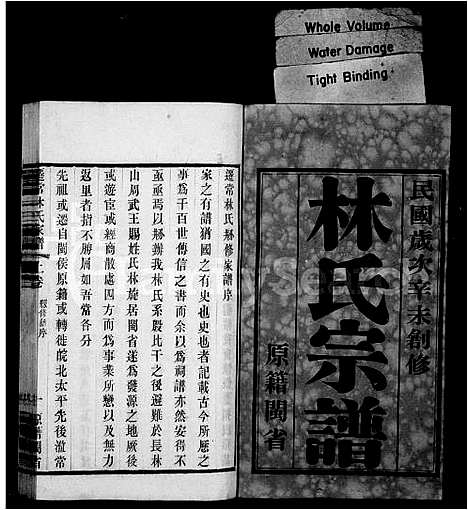 Whole Volume
Water Damage
Tight Binding
民國歲次辛未創修
林氏宗譜
原籍閩省
遷常林氏繇修家譜序
家之有譜猶國之有史也史者記載古今所歷之
事為千百世傳信之書而余以為祠譜亦然安得不
亟亟焉以繇辦我林氏系殷比干之後避難於長林
山周武王賜姓氏林旋居閩省遂為發源之地厥後
或遊宦或經商散處四方而為事業所戀以及無力
返里者指不勝屈如吾常各分
先祖或遷自閩侯原籍或轉徙皖北太平先後蒞常
遷常林氏家譜
卷一
序
一
原籍閩省